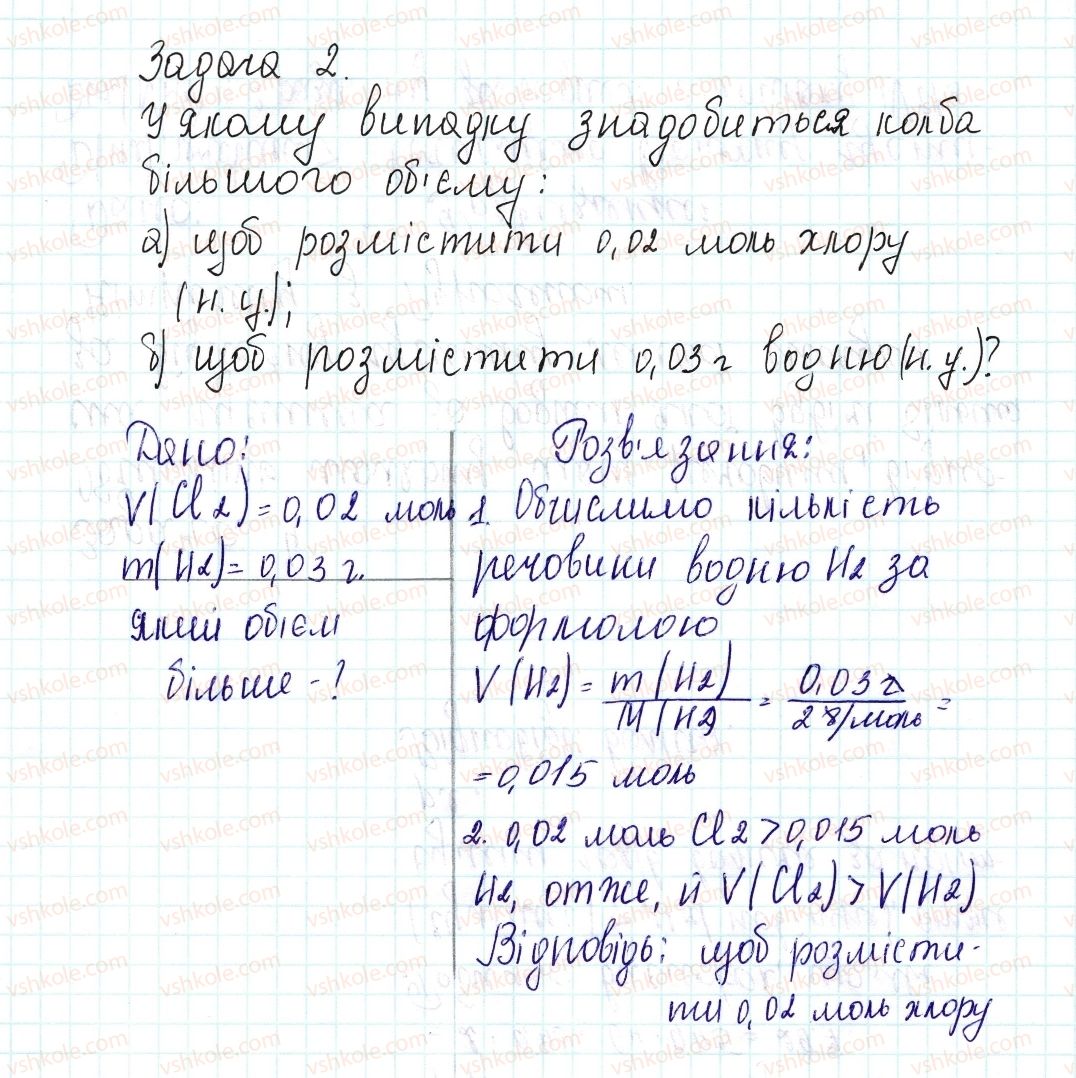 Задача 2.
У якому випадку знадобиться колба
більшого об'єму:
а) щоб розмістити 0,02 моль хлору
(н.у.);
б) щоб розмістити 0,03 г водню (н.у.)?
Дано:
V(Cl2) = 0,02 моль
m(H2) = 0,03 г.
Який об'єм
більше - ?
Розв'язання:
1. Обчислимо кількість
речовини водню H2 за
формолою
V(H2) = m(H2)/M(H2) = 0,03 г/2 г/моль =
= 0,015 моль
2. 0,02 моль Cl2 > 0,015 моль
H2, отже, й V(Cl2) > V(H2)
Відповідь: щоб розмісти-
ти 0,02 моль хлору
vshkole.com